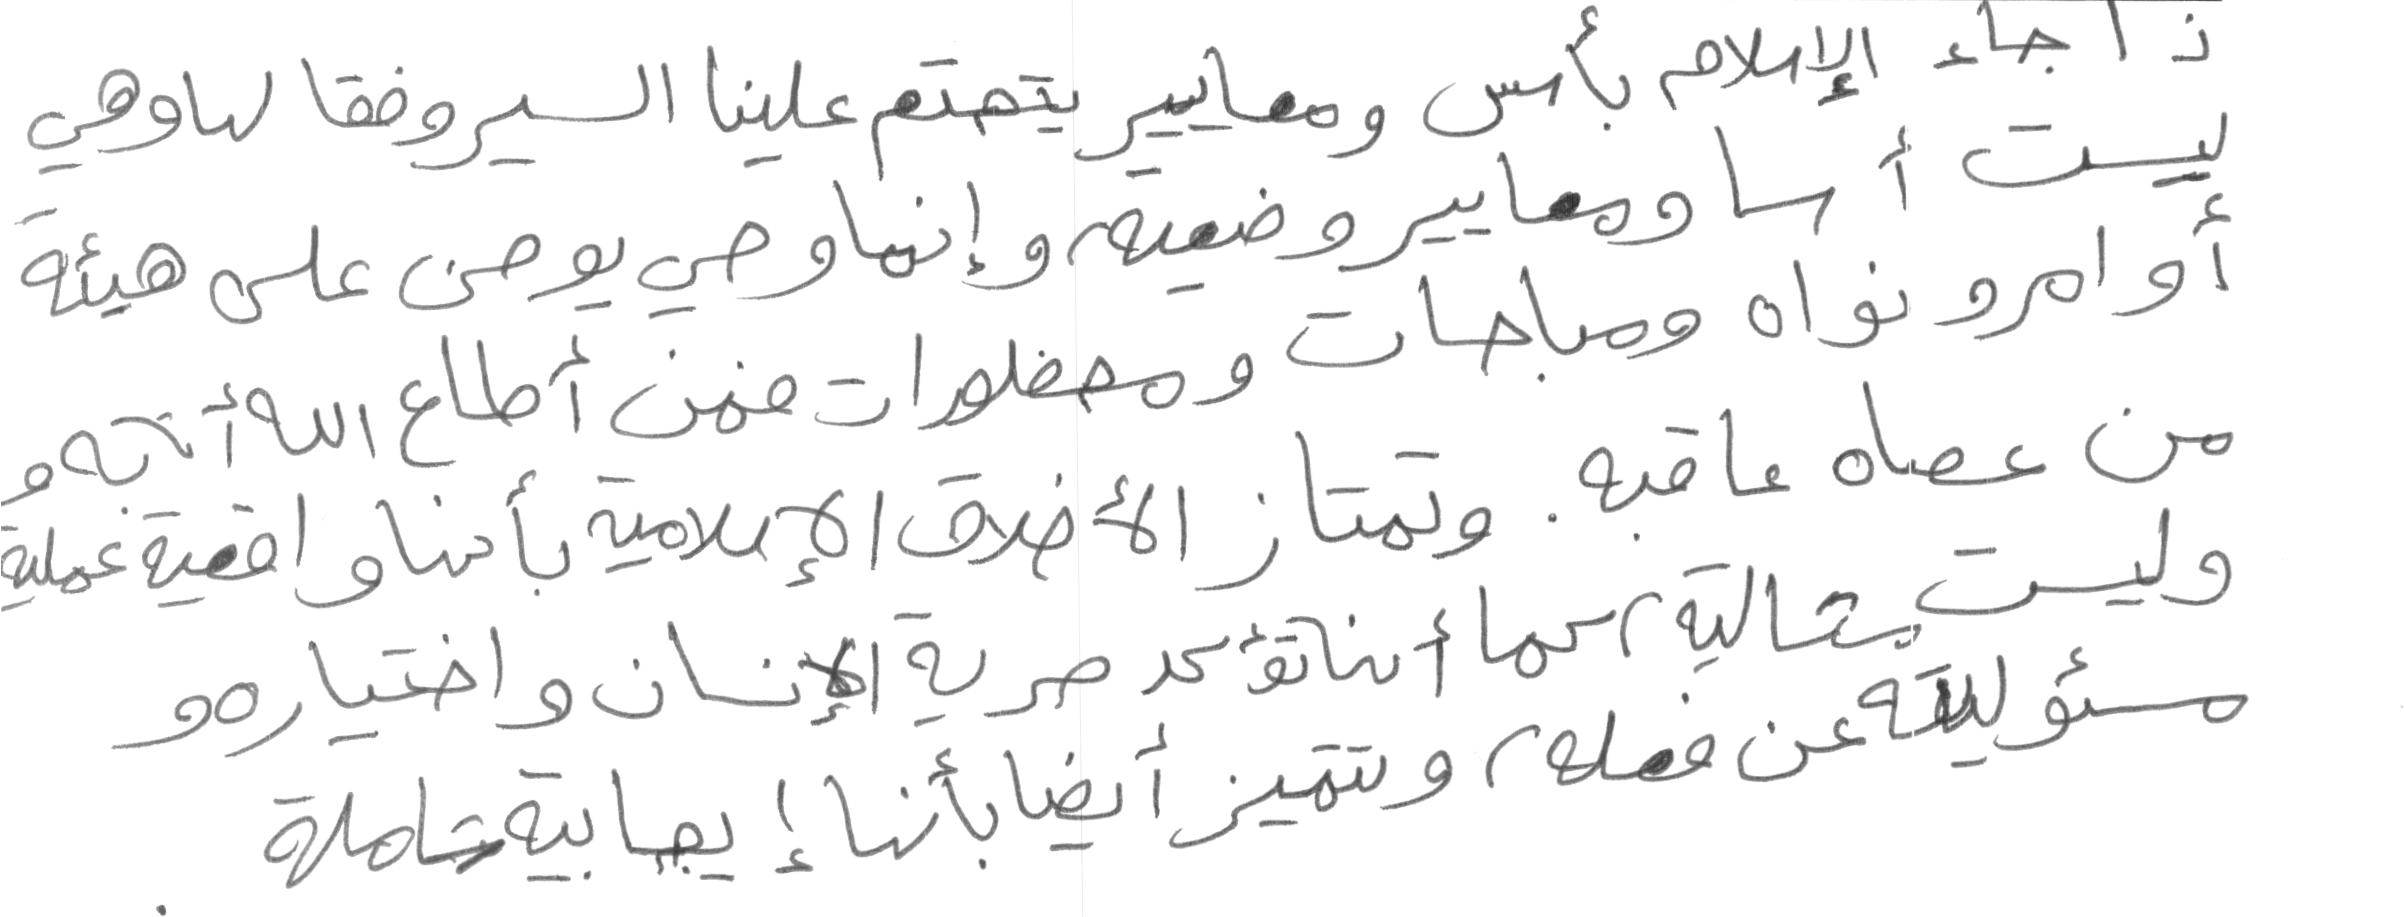 ذا جاء الإسلام بأسس ومعايير يتحتم علينا السير وفقا لها وهي
ليست أسسا ومعايير وضعية، وإنما وحي يوحى على هيئة
أوامر ونواه ومباحات ومحظورات فمن أطاع الله أثابه و
من عصاه عاقبه. وتمتاز الأخلاق الإسلامية بأنها واقعية عملية
وليست مثالية، كما أنها تؤكد حرية الإنسان واختياره و
مسئوليته عن فعله، وتتميز أيضا بأنها إيجابية شاملة
.